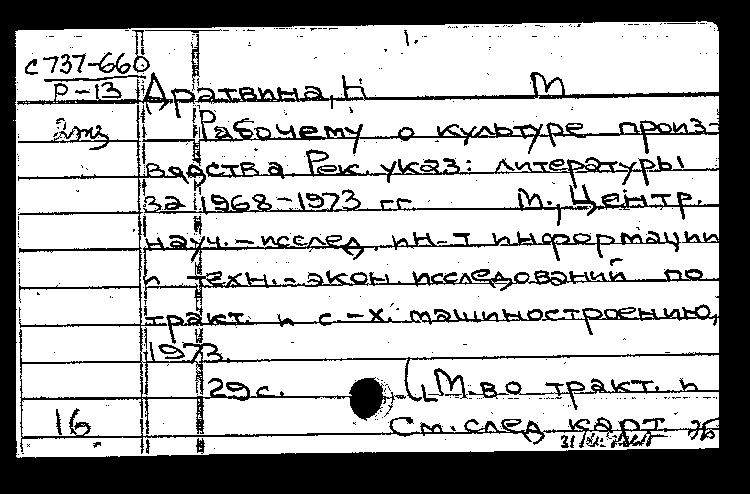 1.
с737-660
Р-13 Дратвина, Н М
2экз Рабочему о культуре произ-
водства. Рек. указ: литературы
за 1968-1973 гг. М., Центр.
науч.-исслед. ин-т информации
и техн.-экон. исследований по
тракт. и с-х. машиностроению,
1973.
29с. (М-во тракт. и
16 См. след. карт.